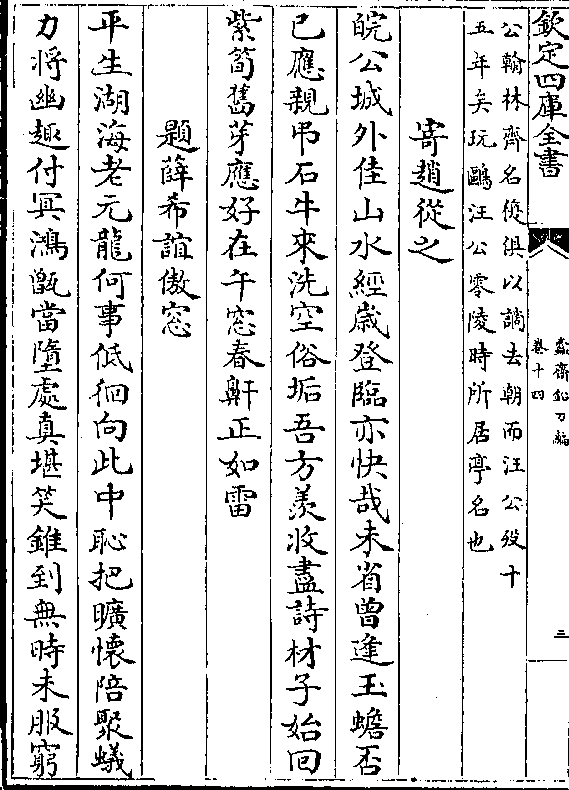 欽定四庫全書
蠡齋鉛刀編
卷十四
三
公翰林齊名倏俱以謫去朝而汪公歿十
五年矣玩鷗汪公零陵時所居亭名也
寄趙從之
皖公城外佳山水經歲登臨亦快哉未省曾逢玉蟾否
已應親弔石牛來洗空俗垢吾方羨收盡詩材子始回
紫筍舊芽應好在午窓春鼾正如雷
題薛希誼傲窓
平生湖海老元龍何事低徊向此中恥把曠懐陪聚蟻
力將幽趣付冥鴻甑當墮處真堪笑錐到無時未服窮